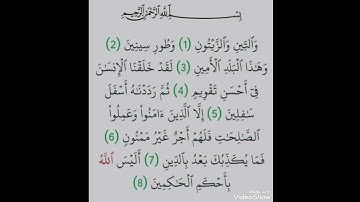 بِسْمِ ٱللَّهِ ٱلرَّحْمَٰنِ ٱلرَّحِيمِ
وَٱلتِّينِ وَٱلزَّيْتُونِ (1) وَطُورِ سِينِينَ (2)
وَهَٰذَا ٱلْبَلَدِ ٱلْأَمِينِ (3) لَقَدْ خَلَقْنَا ٱلْإِنسَٰنَ
فِىٓ أَحْسَنِ تَقْوِيمٍ (4) ثُمَّ رَدَدْنَٰهُ أَسْفَلَ
سَٰفِلِينَ (5) إِلَّا ٱلَّذِينَ ءَامَنُوا۟ وَعَمِلُوا۟
ٱلصَّٰلِحَٰتِ فَلَهُمْ أَجْرٌ غَيْرُ مَمْنُونٍ (6)
فَمَا يُكَذِّبُكَ بَعْدُ بِٱلدِّينِ (7) أَلَيْسَ ٱللَّهُ
بِأَحْكَمِ ٱلْحَٰكِمِينَ (8)
VideoShow